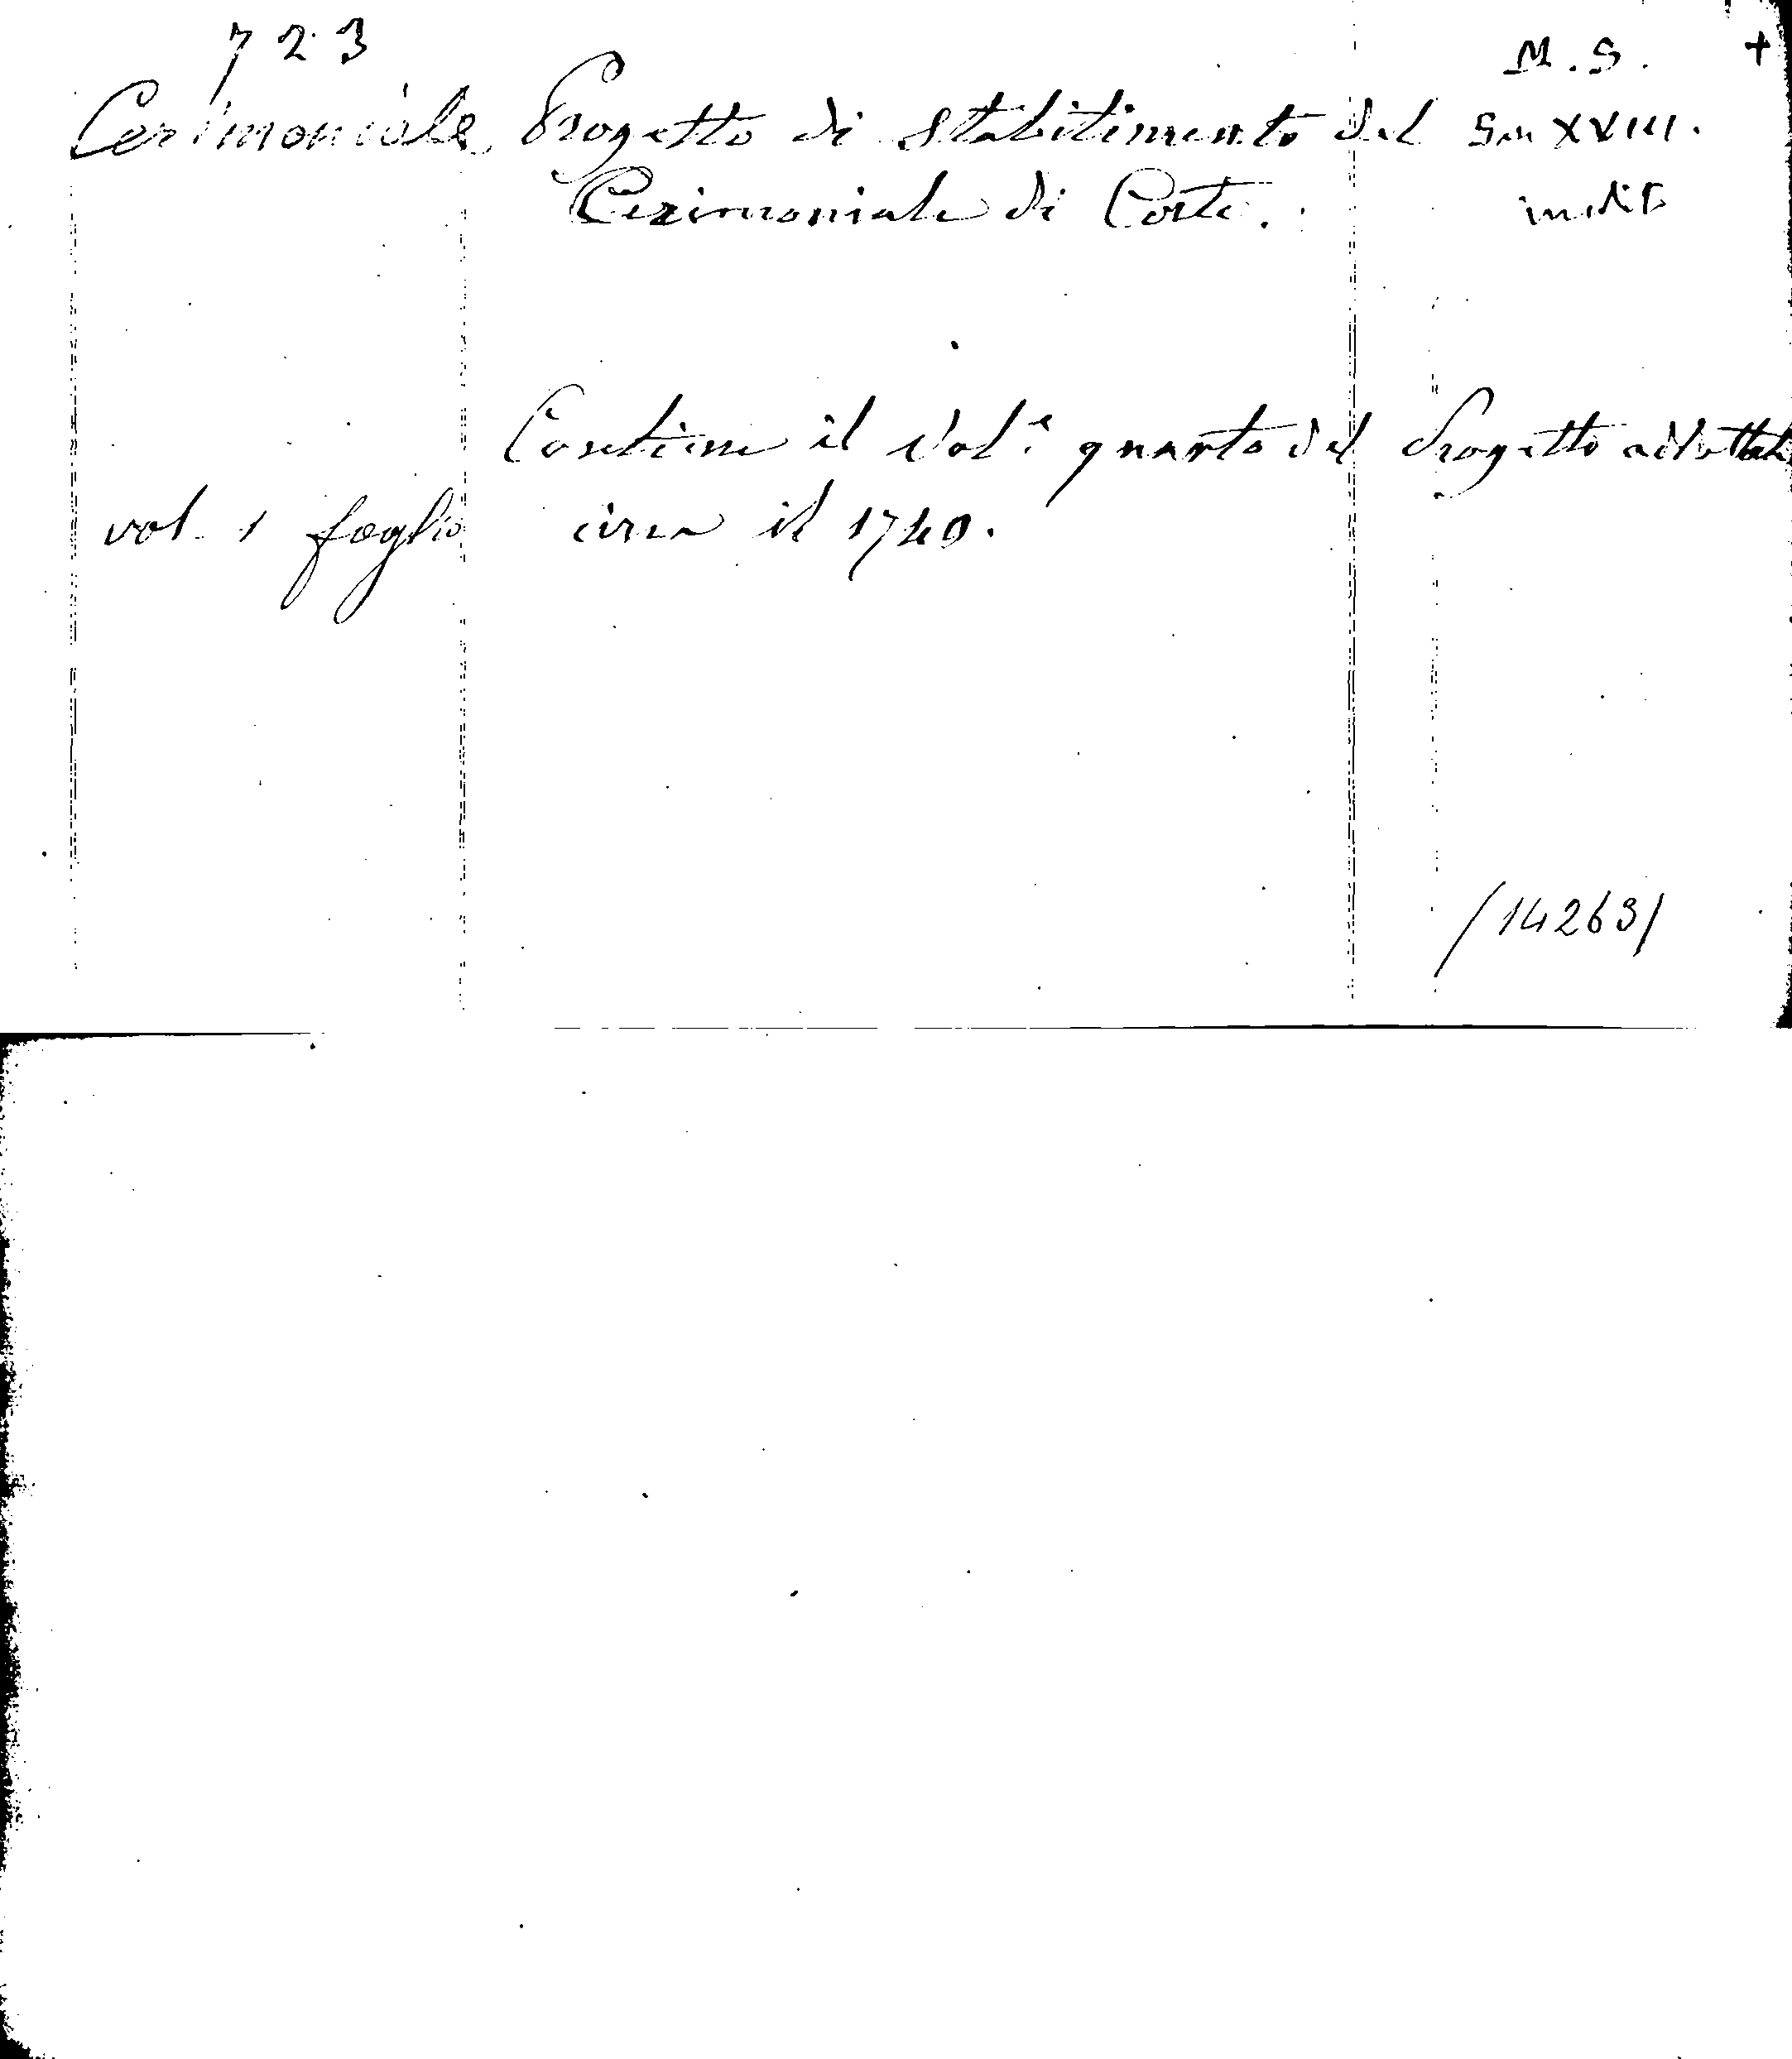 723 M.S. +
Cerimoniale Progetto di stabilimento del Sec XVIII.
Cerimoniale di Corte. inedito
Contiene il Vol.e quarto del Progetto adottato
vol. 1 foglio circa il 1740.
/14263/